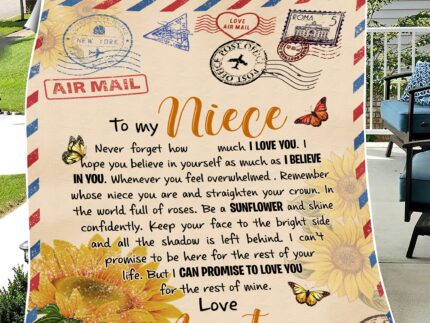 NEW YORK
LOVE
AIR MAIL
ROMA 5
POST OFFICE POST OFFICE
AIR MAIL
To my Niece
Never forget how much I LOVE YOU. I
hope you believe in yourself as much as I BELIEVE
IN YOU. Whenever you feel overwhelmed . Remember
whose niece you are and straighten your crown. In
the world full of roses. Be a SUNFLOWER and shine
confidently. Keep your face to the bright side
and all the shadow is left behind. I can't
promise to be here for the rest of your
life. But I CAN PROMISE TO LOVE YOU
for the rest of mine.
Love